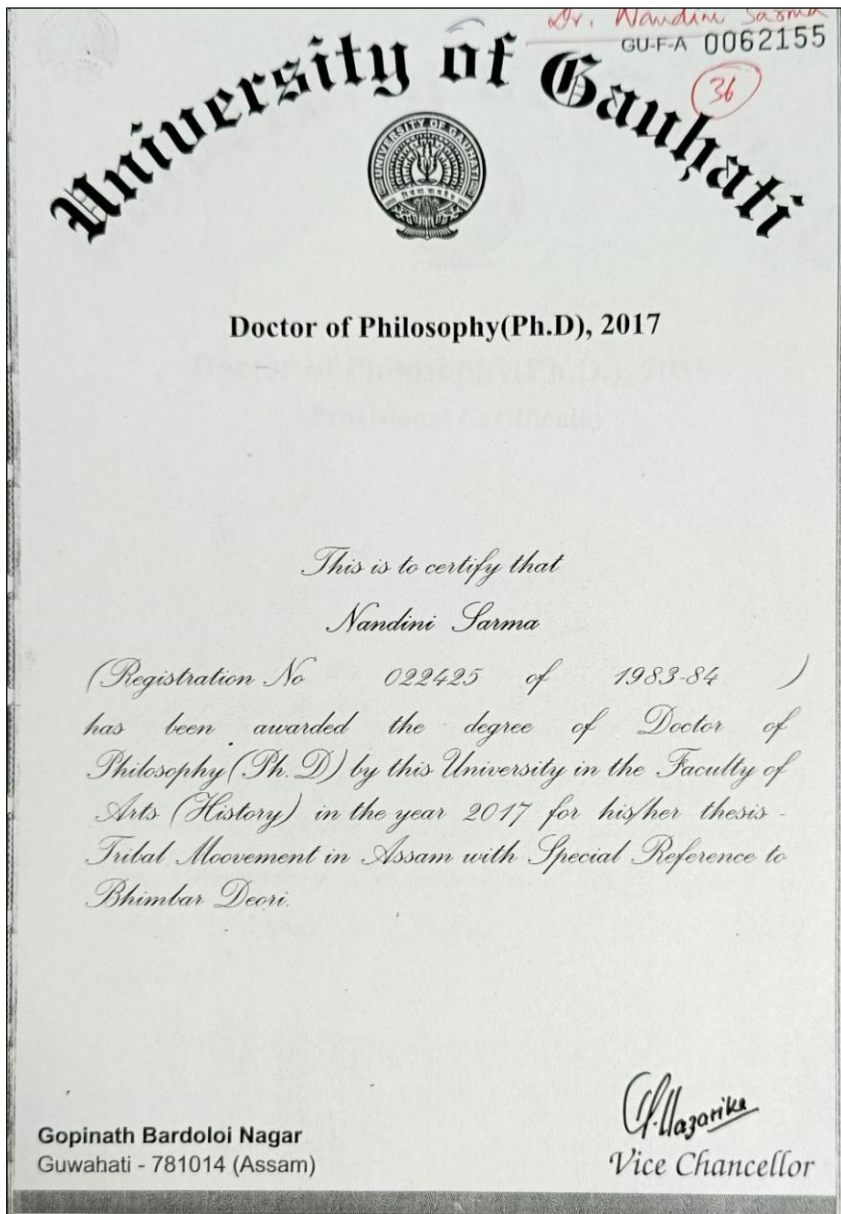 Dr. Nandini Sarma
GU-F-A 0062155
36
University of Gauhati
UNIVERSITY OF GAUHATI
Doctor of Philosophy(Ph.D), 2017
Doctor of Philosophy(Ph.D.), 2019
(Provisional Certificate)
This is to certify that
Nandini Sarma
(Registration No 022425 of 1983-84 )
has been awarded the degree of Doctor of
Philosophy(Ph.D) by this University in the Faculty of
Arts (History) in the year 2017 for his/her thesis -
Tribal Moovement in Assam with Special Reference to
Bhimbar Deori.
Hazarika
Gopinath Bardoloi Nagar
Guwahati - 781014 (Assam)
Vice Chancellor